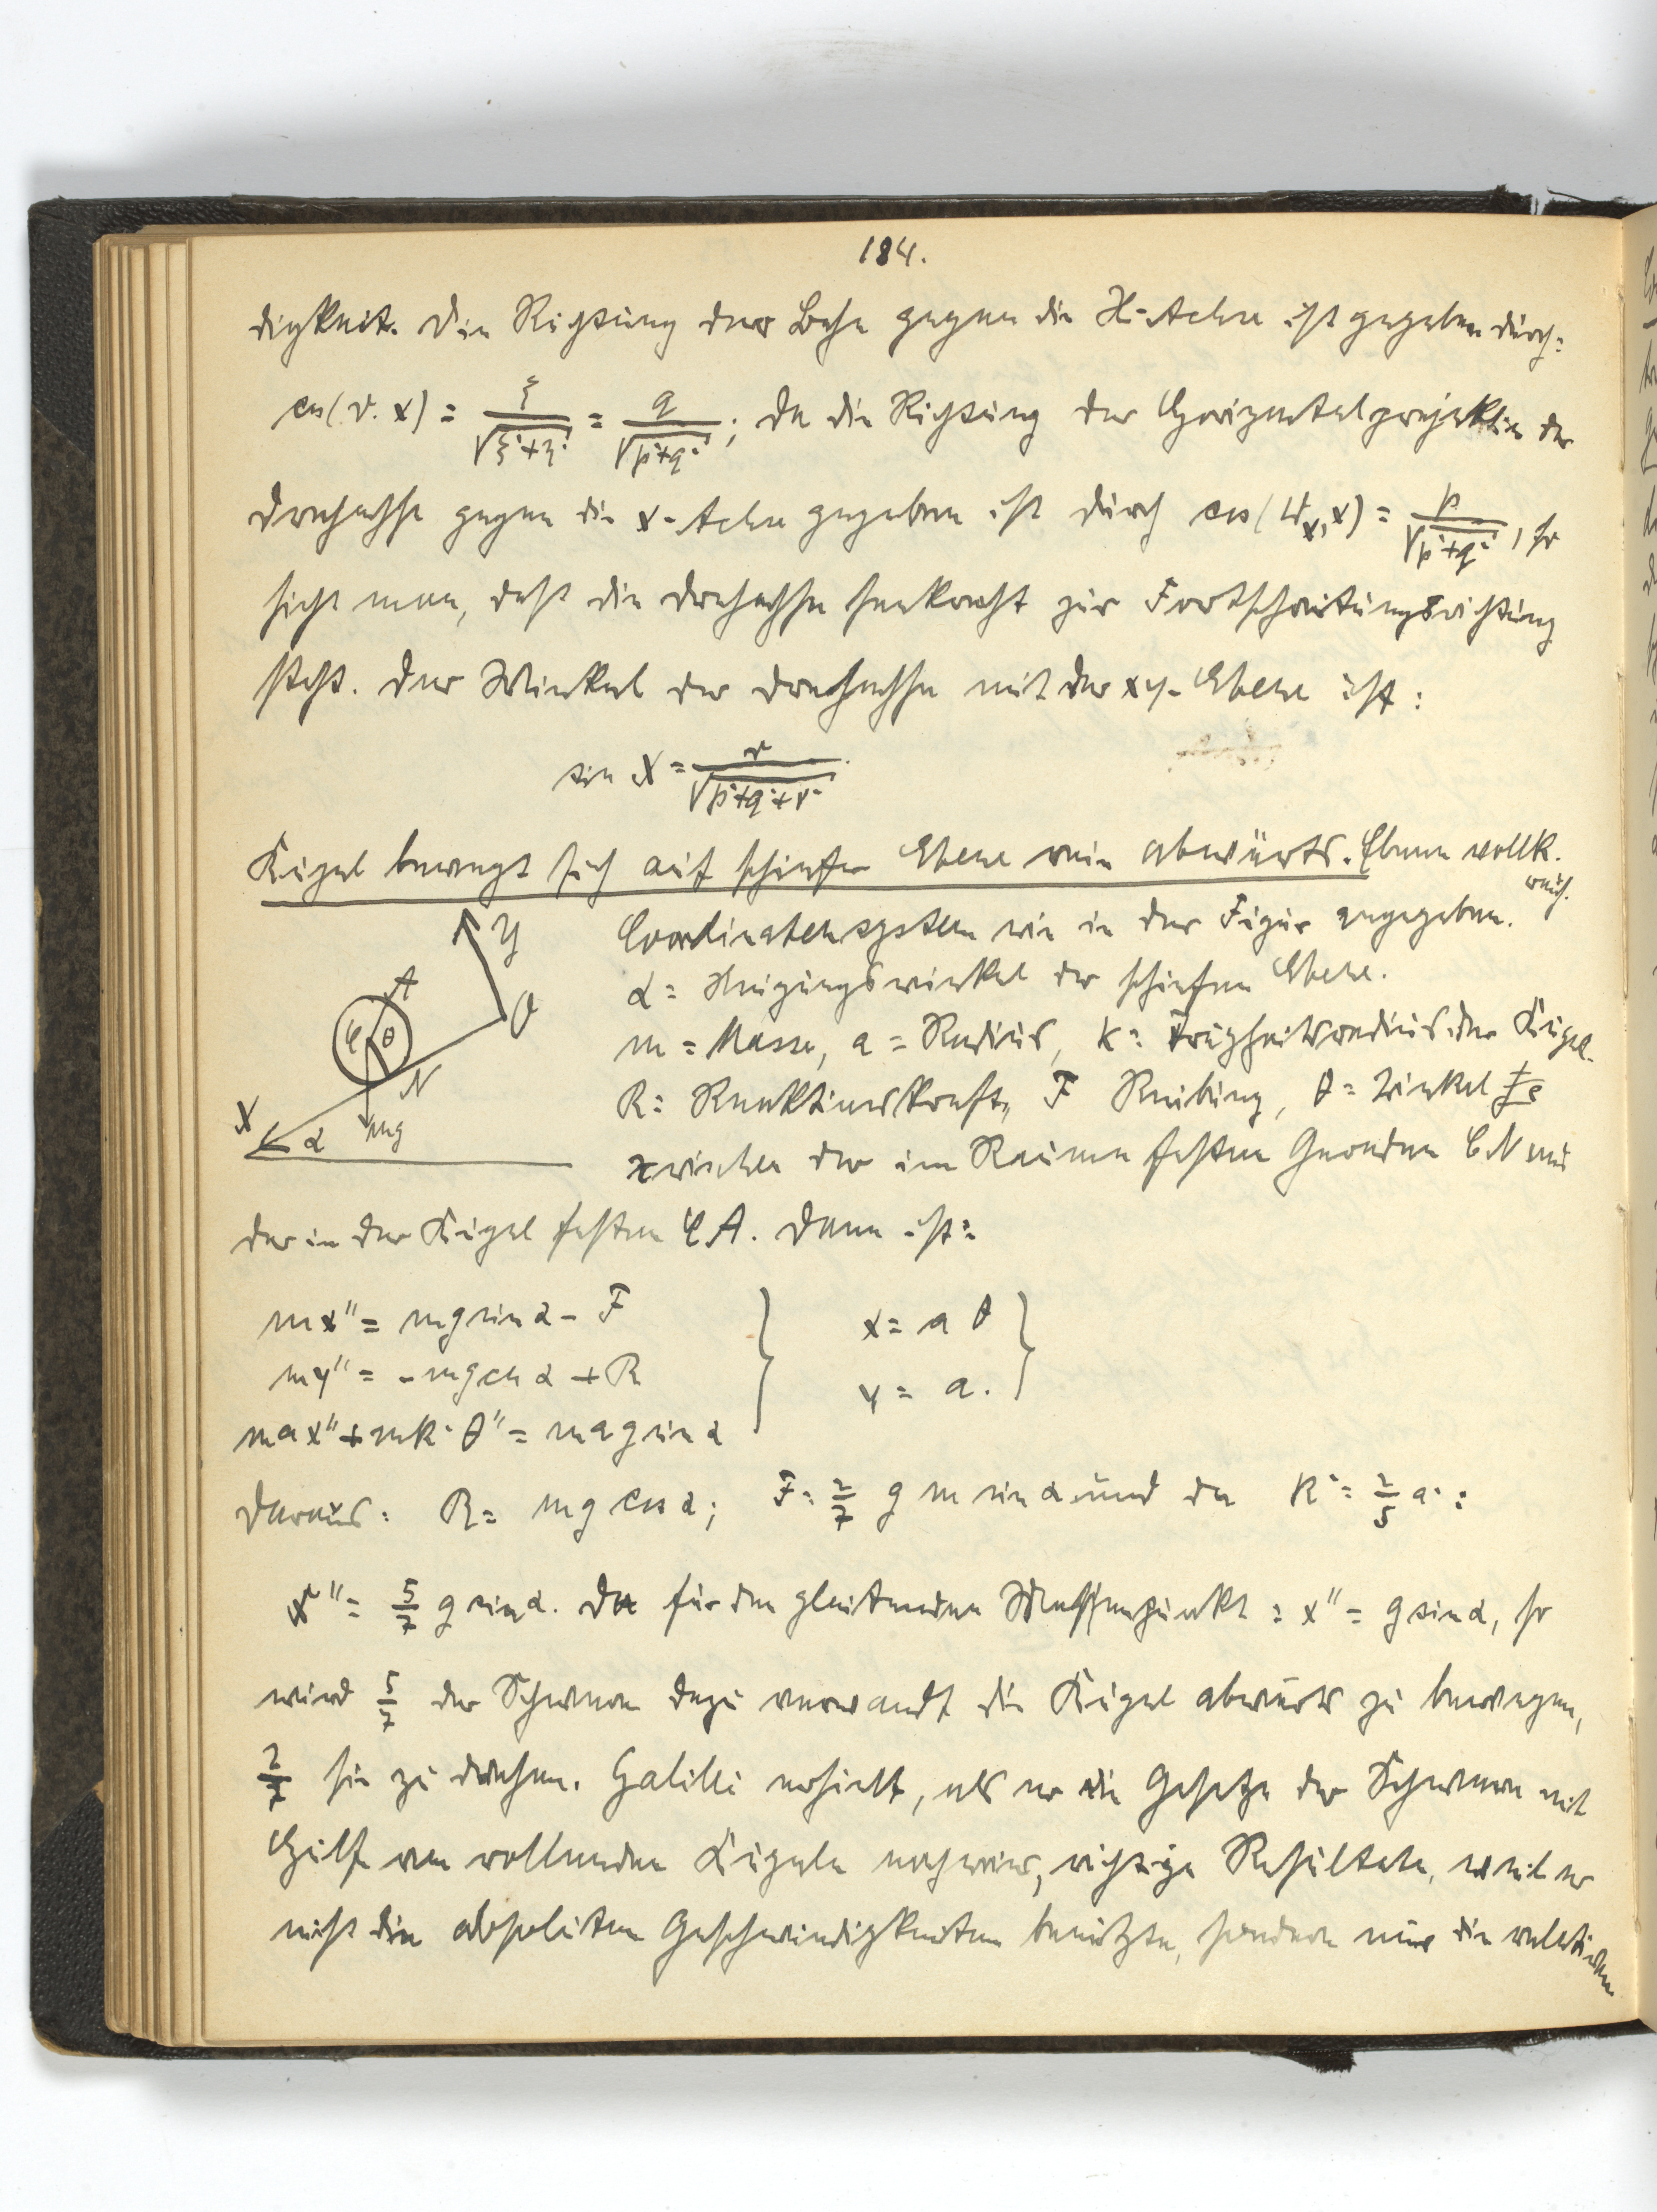 184.
digkeit. Die Richtung der Bahn gegen die X-Achse ist gegeben durch:
cos(v.x) = ξ/√(ξ²+η²) = q/√(p²+q²); da die Richtung der Horizontalprojektion der
Drehachse gegen die x-Achse gegeben ist durch cos( x) = p/√(p²+q²), so
sieht man, daß die Drehachse senkrecht zur Fortschreitungsrichtung
steht. Der Winkel der Drehachse mit der xy-Ebene ist:
sin X = r/√(p²+q²+r²)
Kugel bewegt sich auf schiefer Ebene rein abwärts. Ebene vollk.
rauh.
Coordinatensystem wie in der Figur angegeben.
α = Neigungswinkel der schiefen Ebene.
m = Masse, a = Radius, k = Trägheitsradius der Kugel.
R = Reaktionskraft, F Reibung, θ = Winkel
zwischen der im Raume festen Geraden CN und
Y
A
O
C θ
N
X
α
mg
der in der Kugel festen CA. Dann ist:
mx'' = mg sin α - F
my'' = - mg cos α + R
max'' + mk² θ'' = mag sin α
x = a θ
y = a.
Daraus: R = mg cos α; F = 2/7 g m sin α und da k² = 2/5 a²:
x'' = 5/7 g sin α. Da für den gleitenden Massenpunkt: x'' = g sin α, so
wird 5/7 der Schwere dazu verwandt die Kugel abwärts zu bewegen,
2/7 sie zu drehen. Galilei erhielt, als er die Gesetze der Schwere mit
Hilfe von rollenden Kugeln nachwies, richtige Resultate, weil er
nicht die absoluten Geschwindigkeiten benützte, sondern nur die relativen